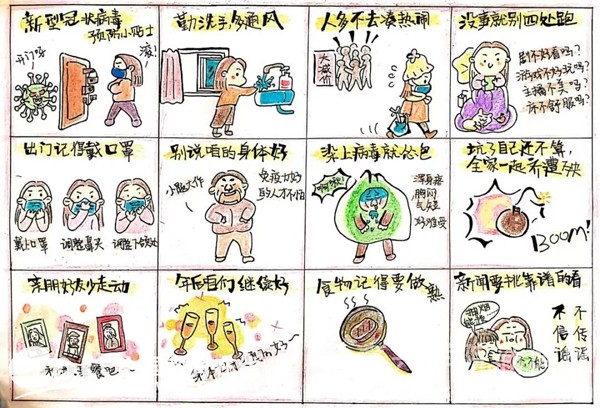 新型冠状病毒
预防小贴士
开门呀
滚!
勤洗手多通风
人多不去凑热闹
大减价
没事就别四处跑
剧不好看吗?
游戏不好玩吗?
主播不美吗?
床不舒服吗?
出门记得戴口罩
戴上口罩
调整鼻夹
别说咱的身体好
小题大作
免疫力好
的人才不怕
染上病毒就怂包
浑身疼
胸闷
气短
好难受
坑了自己还不算
全家一起齐遭殃
BOOM!
亲朋好友少走动
年后咱们继续好
食物记得要做熟
新闻要挑靠谱的看
不信谣
不传谣
不可能